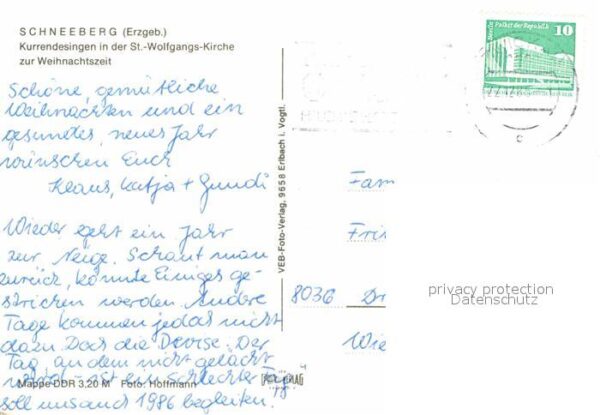 SCHNEEBERG (Erzgeb.)
Kurrendesingen in der St.-Wolfgangs-Kirche
zur Weihnachtszeit
Schöne, gemütliche
Weihnachten und ein
gesundes, neues Jahr
wünschen Euch
Klaus, Katja + Gundi
Wieder geht ein Jahr
zur Neige. Schaut man
zurück, könnte Einiges ge-
strichen werden. Andere
Tage kommen jedoch nicht
dazu. Doch die Devise: Der
Tag, an dem nicht gelacht
wird - ist ein schlechter Tag
soll uns auch 1986 begleiten.
Mappe DDR 3,20 M Foto: Hoffmann
VEB-Foto-Verlag, 9658 Erlbach i. Vogtl.
Palast der Republik
10
Fam
8036
privacy protection
Datenschutz